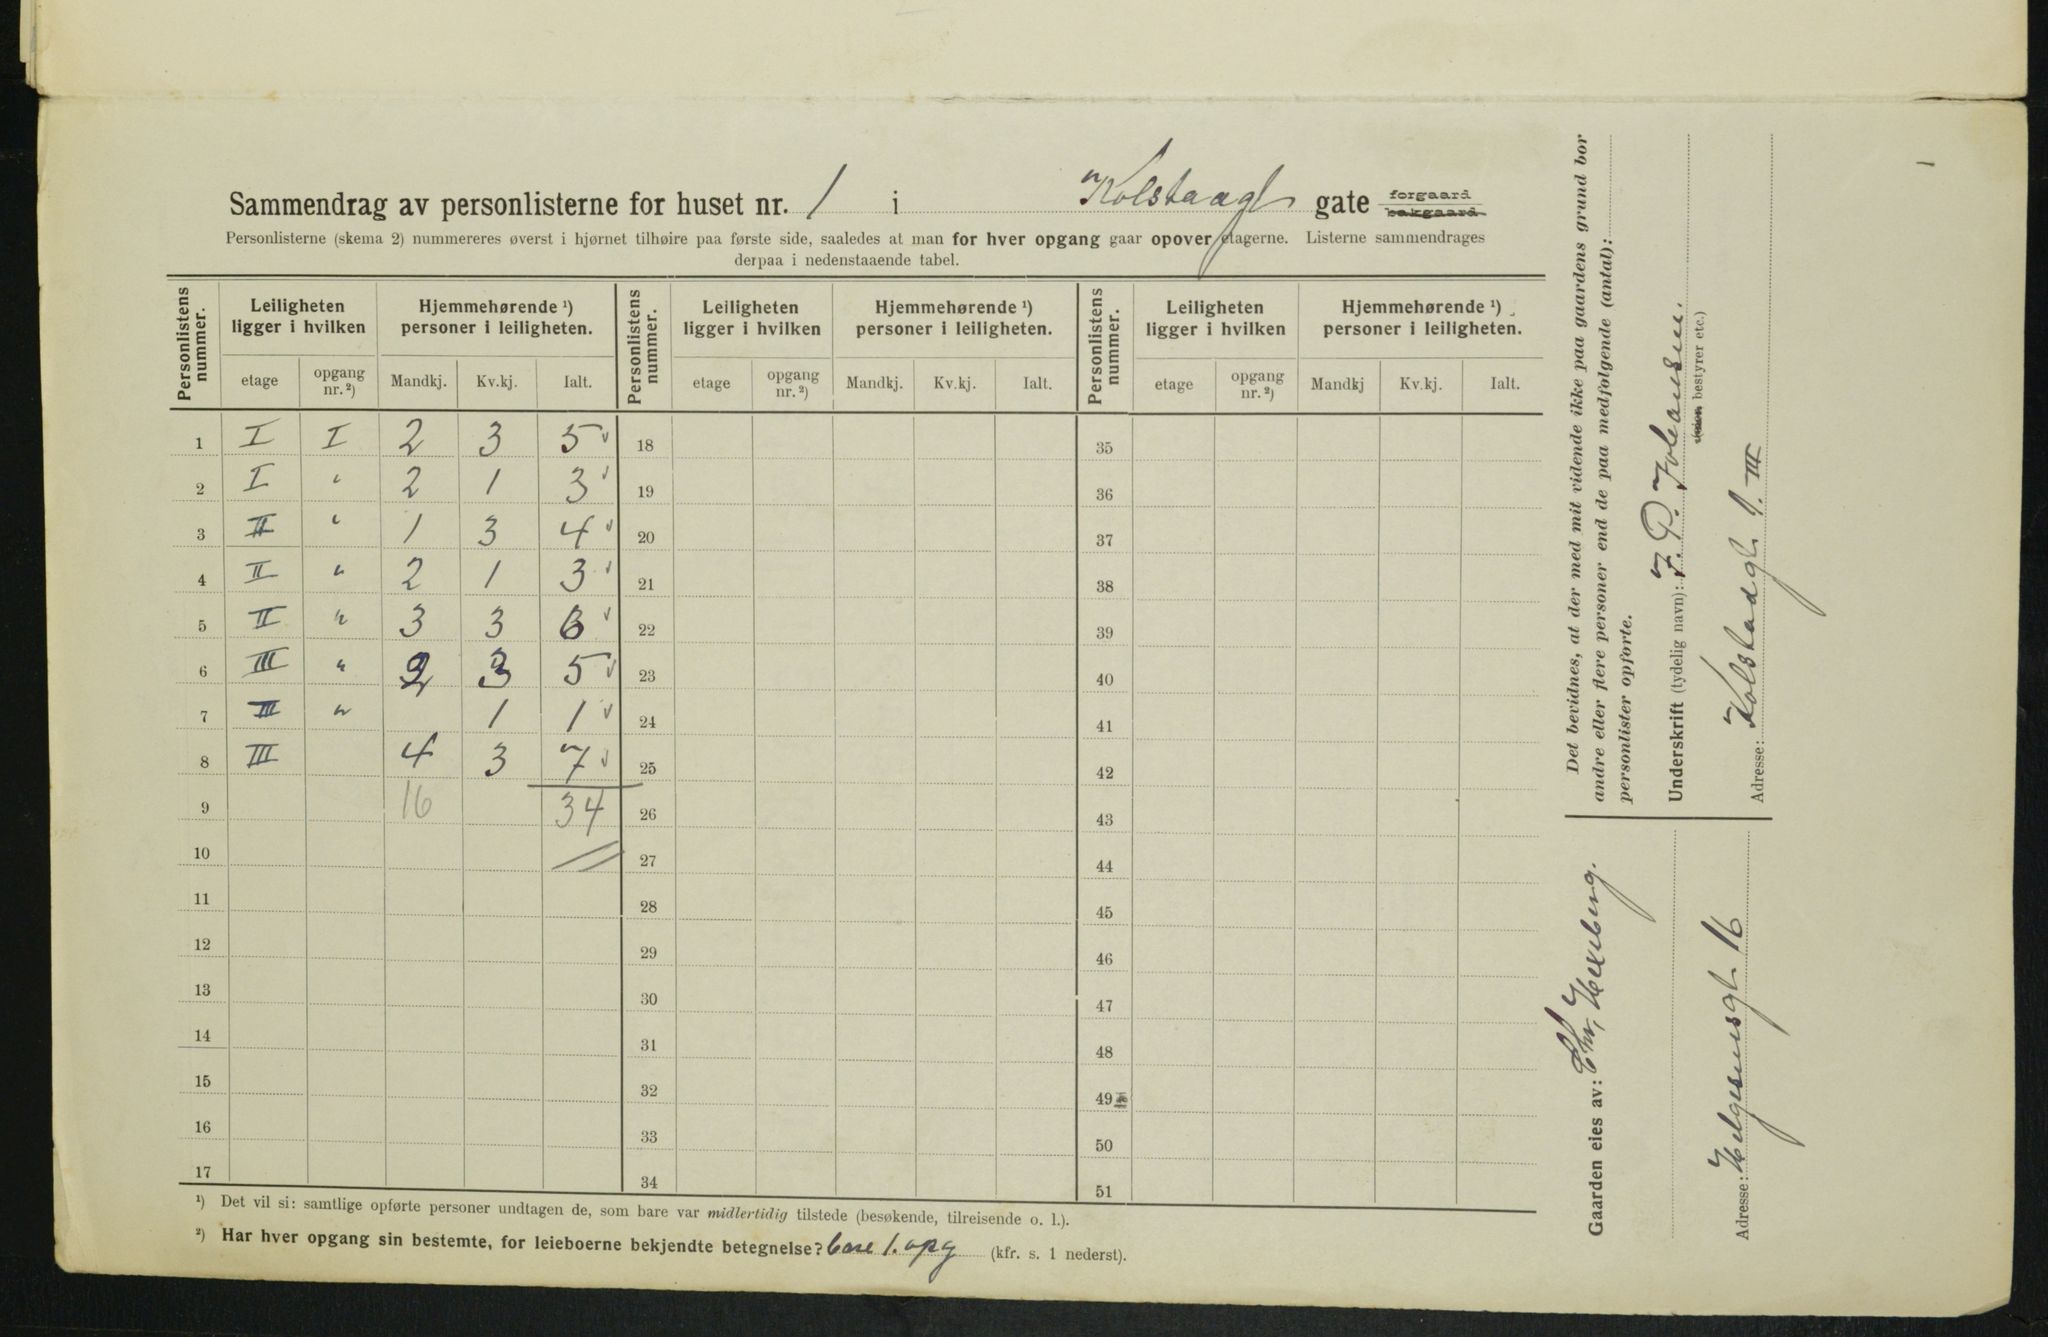 Sammendrag av personlisterne for huset nr. 1 i Kolstadgt gate forgaard bakgaard
Personlisterne (skema 2) nummereres øverst i hjørnet tilhøire paa første side, saaledes at man for hver opgang gaar opover etagerne. Listerne sammendrages
derpaa i nedenstaaende tabel.
Personlistens nummer. Leiligheten ligger i hvilken Hjemmehørende ¹) personer i leiligheten. Personlistens nummer. Leiligheten ligger i hvilken Hjemmehørende ¹) personer i leiligheten. Personlistens nummer. Leiligheten ligger i hvilken Hjemmehørende ¹) personer i leiligheten.
etage opgang nr. ²) Mandkj. Kv.kj. Ialt. etage opgang nr. ²) Mandkj. Kv.kj. Ialt. etage opgang nr. ²) Mandkj Kv.kj. Ialt.
1 I I 2 3 5 18 35
2 I " 2 1 3 19 36
3 II " 1 3 4 20 37
4 II " 2 1 3 21 38
5 II " 3 3 6 22 39
6 III " 2 3 5 23 40
7 III " 1 1 24 41
8 III 4 3 7 25 42
9 16 34 26 43
10 27 44
11 28 45
12 29 46
13 30 47
14 31 48
15 32 49
16 33 50
17 34 51
¹) Det vil si: samtlige opførte personer undtagen de, som bare var midlertidig tilstede (besøkende, tilreisende o. l.).
²) Har hver opgang sin bestemte, for leieboerne bekjendte betegnelse? bare 1. opg (kfr. s. 1 nederst).
Det bevidnes, at der med mit vidende ikke paa gaardens grund bor
andre eller flere personer end de paa medfølgende (antal):
personlister opførte.
Underskrift (tydelig navn): J. P. Johansen.
(eier, bestyrer etc.)
Adresse: Kolstadgt. 1. III
Gaarden eies av: Chr. Hexeberg.
Adresse: Helgesensgt. 16